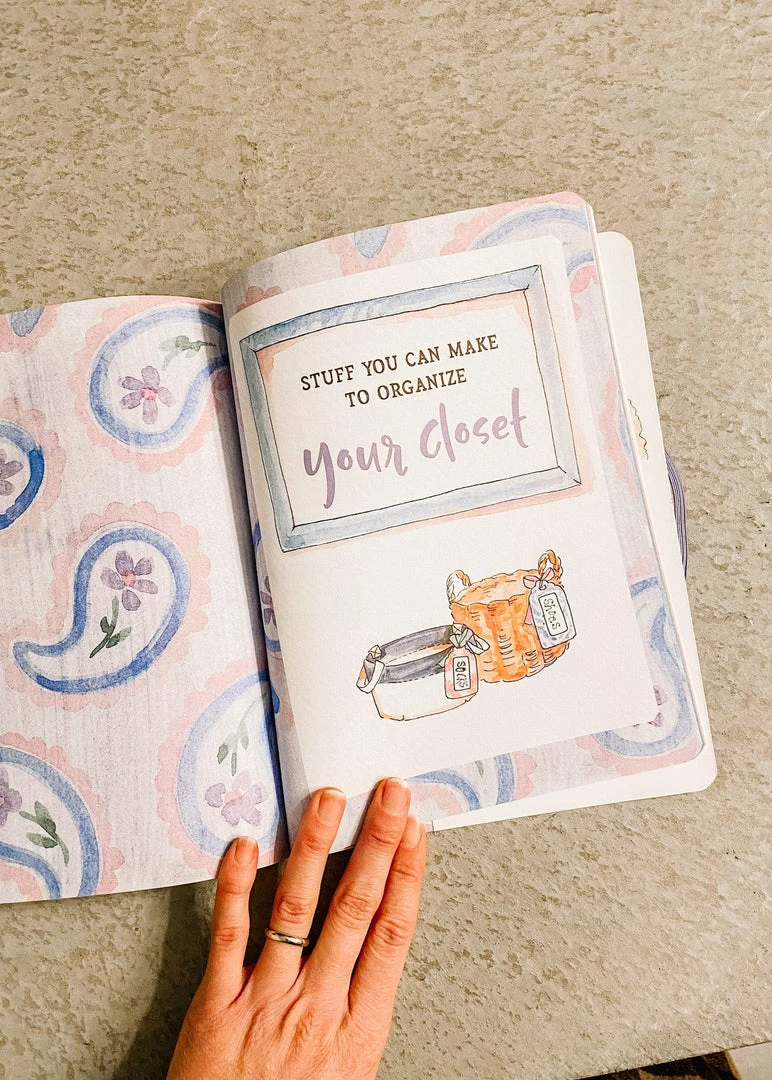 STUFF YOU CAN MAKE
TO ORGANIZE
your closet
shoes
SOCKS